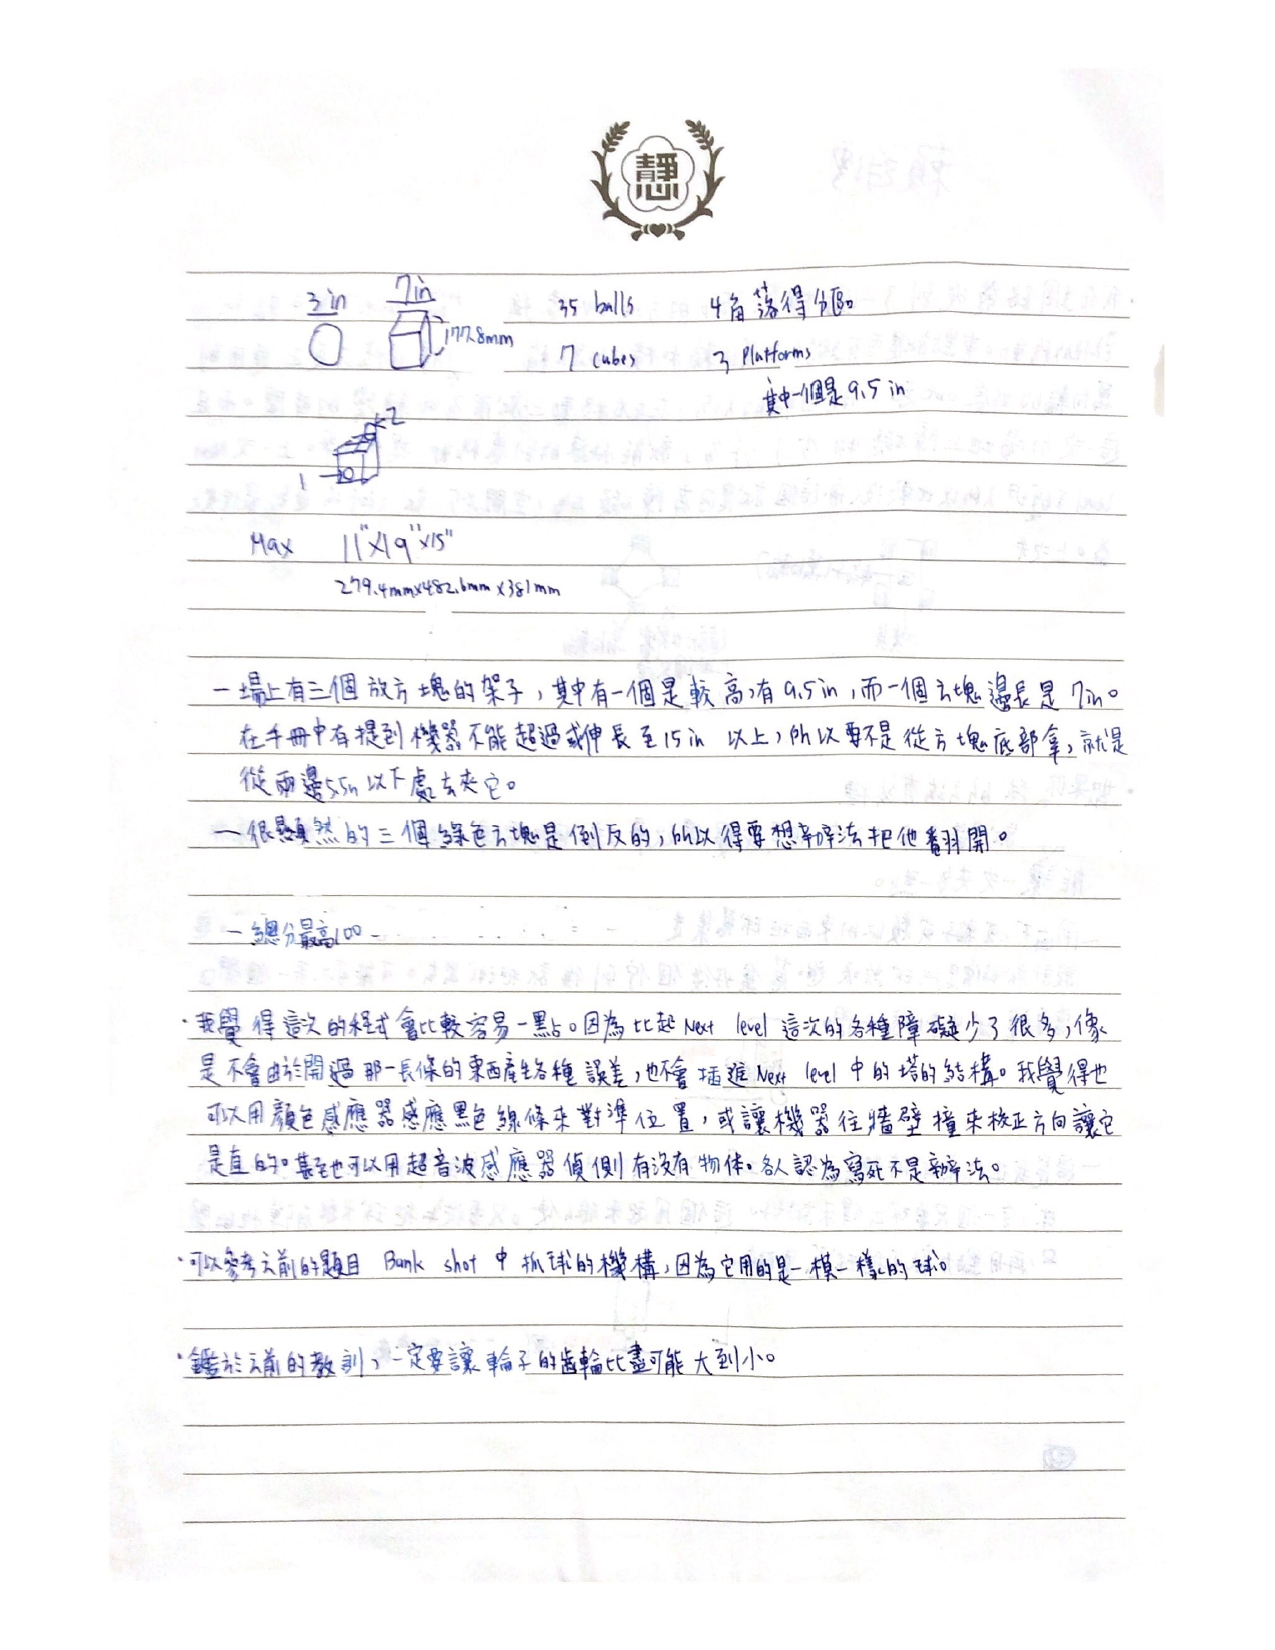 靜心
3 in 7in 35 balls 4角落得分區。
177.8mm
7 cubes 3 Platforms
其中一個是9.5 in
2
1
Max 11"x19"x15"
279.4mmx482.6mmx381mm
一場上有三個放方塊的架子，其中有一個是較高，有9.5in，而一個方塊邊長是7in。
在手冊中有提到機器不能超過或伸長至15in以上，所以要不是從方塊底部拿，就是
從兩邊5.5in以下處去夾它。
一很顯然的三個綠色方塊是倒反的，所以得要想辦法把他翻開。
一總分最高100
·我覺得這次的程式會比較容易一點。因為比起Next level這次的各種障礙少了很多，像
是不會由於開過那一長條的東西產生各種誤差，也不會插進Next level中的塔的結構。我覺得也
可以用顏色感應器感應黑色線條來對準位置，或讓機器往牆壁撞來校正方向讓它
是直的。甚至也可以用超音波感應器偵側有沒有物体。各人認為寫死不是辦法。
·可以參考之前的題目 Bank shot 中抓球的機構，因為它用的是一模一樣的球。
·鑑於之前的教訓，一定要讓輪子的齒輪比盡可能大到小。